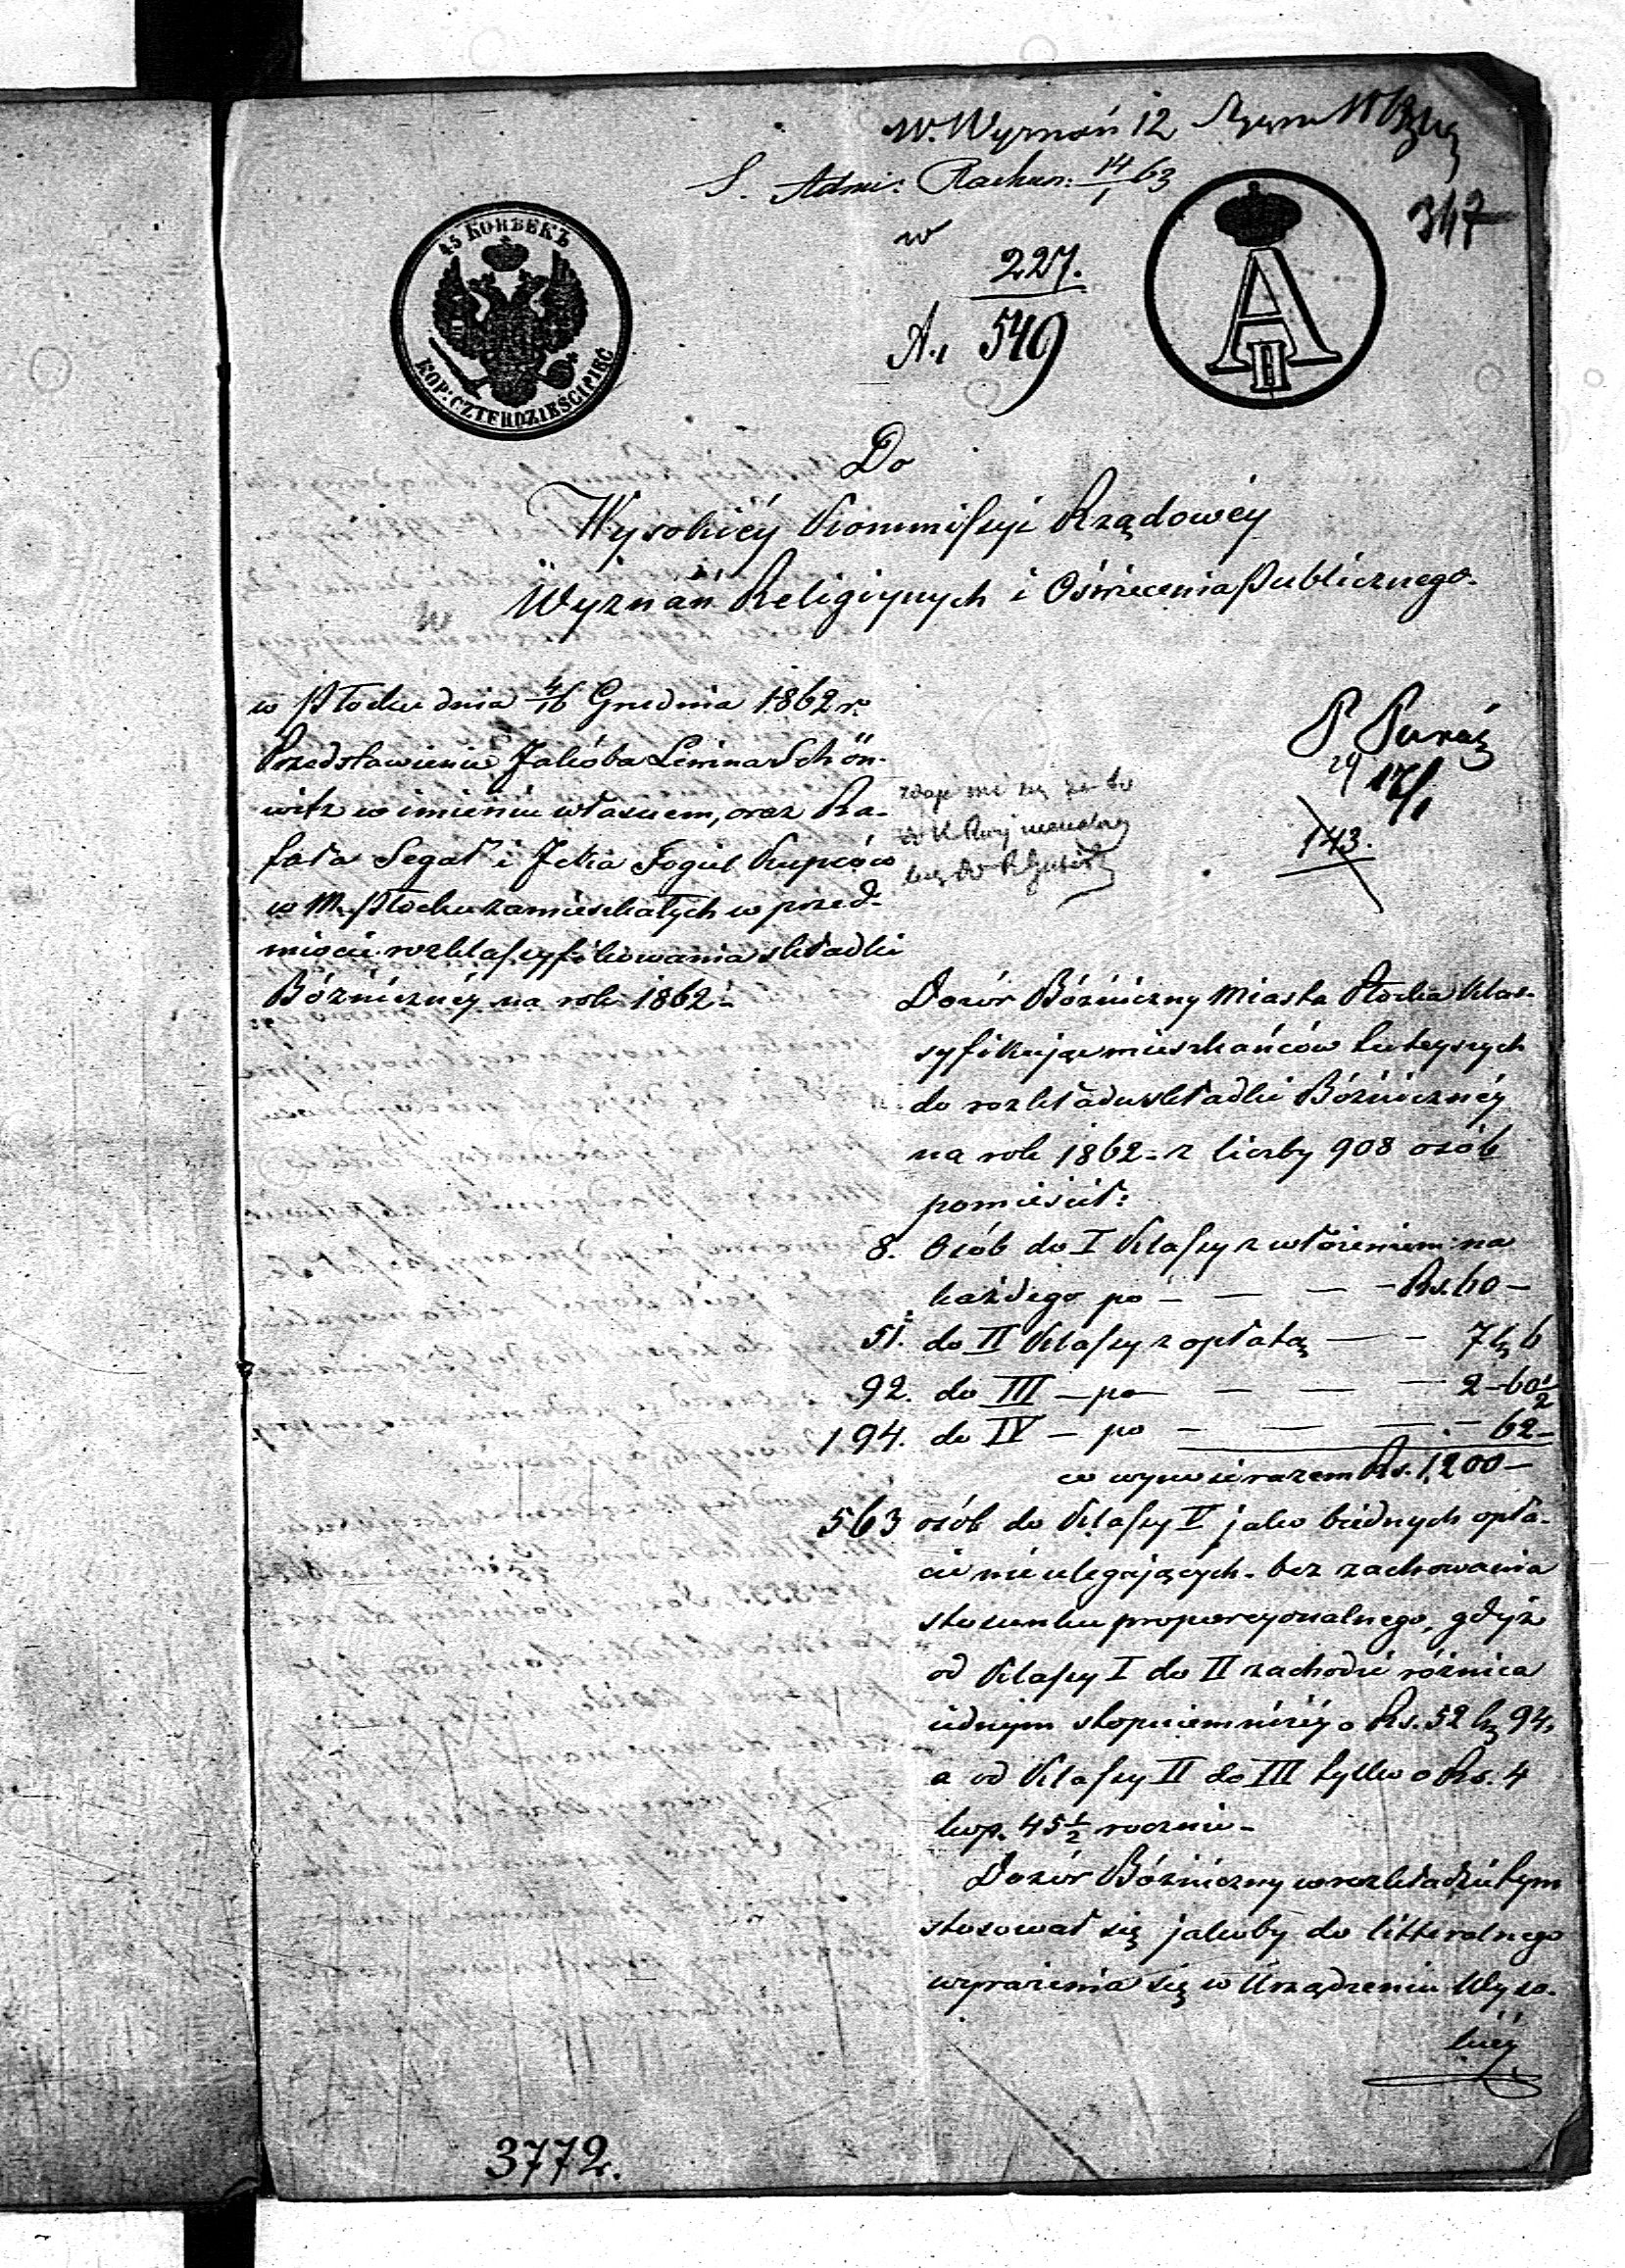 W. Wyznań 12
S. Admi: Rachun: 14/1 63
347
w
227.
A. 549
45 КОПѢЕКЪ
KOP: CZTERDZIEŚCI PIĘĆ
A II
Do
Wysokiéy Kommissyi Rządowéy
Wyznań Religiynych i Oświecenia Publicznego.
w Płocku dnia 4/16 Grudnia 1862 r.
Przedstawienie Jakóba Lewina Schön-
witz w imieniu własnem, oraz Ra-
fała Segał i Icka Fogiel Kupców
w M. Płocku zamieszkałych w przed-
miocie rozklassyfikowania składki
Bóżnicznéy na rok 1862.
zdaje mi się że to
17/1
143.
Dozór Bóżniczny Miasta Płocka klas-
syfikując mieszkańców tuteyszych
do rozkładu składki Bóżniczney
na rok 1862 - z liczby 908 osób
pomieścił:
8. Osób do I Klassy z włożeniem na
każdego po — — — Rs. 60 —
51. do II Klassy z opłatą — — 7 k 6
92. do III — po — — — 2 - 60 1/2
194. do IV — po — — — 62 -
co wynosi razem Rs. 1,200 —
563 osób do Klassy V jako biednych opła-
cie nieulegających - bez zachowania
stosunku proporcyonalnego, gdyż
od Klassy I do II zachodzi różnica
iednym stopniem niżéy o Rs. 52 k 94,
a od Klassy II do III tylko o Rs. 4
kop. 45 1/2 rocznie -
Dozór Bóżniczny w rozkładzie tym
stosował się jakoby do litteralnego
wyrażenia się w Urządzeniu Wyso-
kiéy
3772.